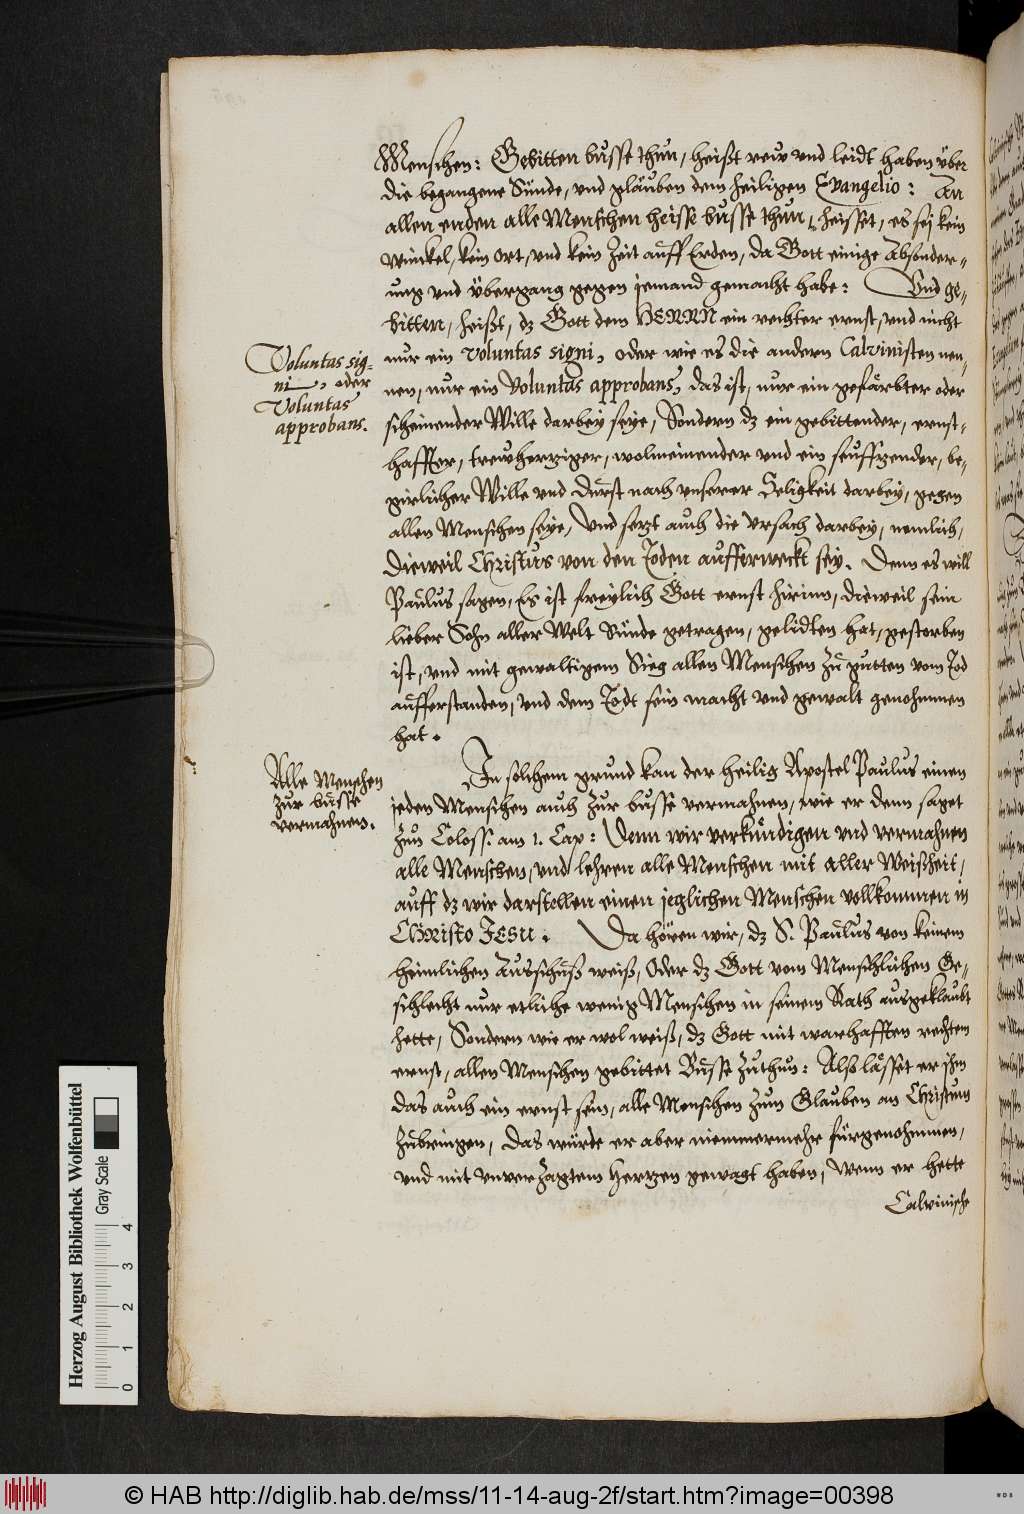 Menschen: Gebitten busse thun, heißt rew vnd leidt haben über
die begangene Sünde, vnd glauben dem heiligen Evangelio: An
allen enden alle Menschen heisse busse thun, heisset, es sej kein
winckel, kein ort, vnd kein Zeit auff Erden, da Gott einige Absonder-
ung vnd übergang gegen jemand gemacht habe: Vnd ge-
bitten, heißt, dz Gott dem HERRN ein rechter ernst, vnd nicht
nur ein voluntas signi, oder wie es die andern Calvinisten nen-
nen, nur ein Voluntas approbans, das ist, nur ein gefärbter oder
scheinender Wille darbey seye, Sondern dz ein gebittender, ernst-
haffter, trewhertziger, wolmeinender vnd ein seufftzender, be-
girlicher Wille vnd durst nach vnserer Seligkeit darbey, gegen
allen Menschen seye, Vnd setzt auch die vrsach darbey, nemlich,
Dieweil Christus von den Toden aufferweckt sey. Denn es will
Paulus sagen, Es ist freylich Gott ernst hirinn, dieweil sein
lieber Sohn aller Welt Sünde getragen, gelidten hat, gestorben
ist, vnd mit gewaltigem Sieg allen Menschen zu gutten vom Tod
aufferstanden, vnd dem Todt sein macht vnd gewalt genohmmen
hat.
Voluntas sig-
ni, oder
Voluntas
approbans.
In solchem grund kan der heilig Apostel Paulus einen
jeden Menschen auch zur busse vermahnen, wie er denn saget
zun Coloss. am 1. Cap: Denn wir verkündigen vnd vermahnen
alle Menschen, vnd lehren alle Menschen mit aller Weißheit,
auff dz wir darstellen einen jeglichen Menschen vollkommen in
Christo Jesu. Da hören wir, dz S. Paulus von keinem
heimlichen Ausschuß weiß, Oder dz Gott vom Menschlichen Ge-
schlecht nur etliche wenig Menschen in seinem Rath ausgeklaubt
hette, Sondern wie er wol weiß, dz Gott mit warhafften rechtem
ernst, allen Menschen gebittet Busse zuthun: Also lässet er ihm
das auch ein ernst sein, alle Menschen zum Glauben an Christum
zubringen, Das würde er aber niemmermehr fürgenohmmen,
vnd mit vnverzagtem hertzen gewagt haben, wenn er hette
Calvinische
Alle Menschen
zur busse
vermahnen.
Herzog August Bibliothek Wolfenbüttel
Gray Scale
0 1 2 3 4
© HAB http://diglib.hab.de/mss/11-14-aug-2f/start.htm?image=00398